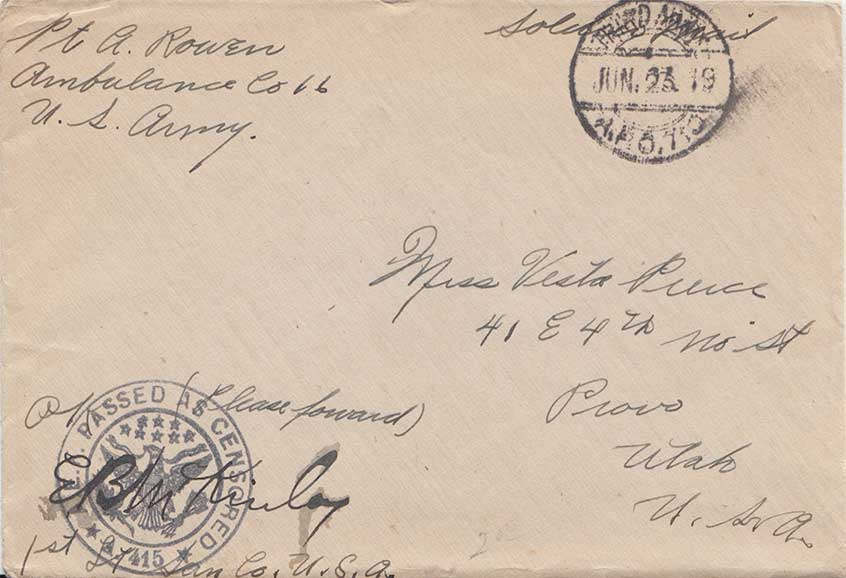 Pt A. Rowen
Ambulance Co 16
U. S. Army.
Soldiers Mail
THIRD ARMY
JUN. 23. 19
A.P.O.
Miss Vesta Pierce
41 E 4th No St
Provo
Utah
U. S. A.
(Please forward)
OK
PASSED AS CENSORED
415
E B McKinley
1st Lt San Co. U. S. A.